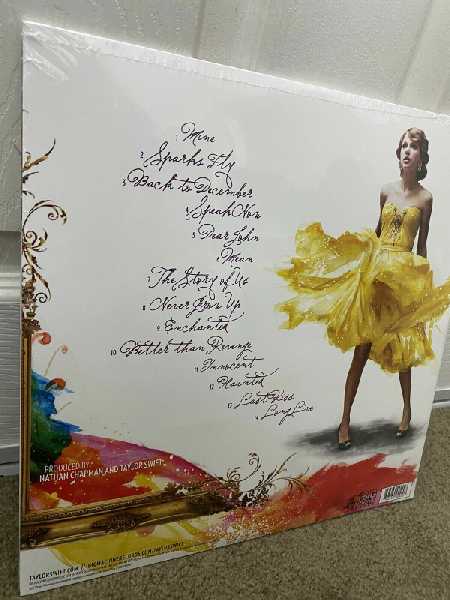 1 Mine
2 Sparks Fly
3 Back to December
4 Speak Now
5 Dear John
6 Mean
7 The Story of Us
8 Never Grow Up
9 Enchanted
10 Better than Revenge
11 Innocent
12 Haunted
13 Last Kiss
14 Long Live
PRODUCED BY:
NATHAN CHAPMAN AND TAYLOR SWIFT